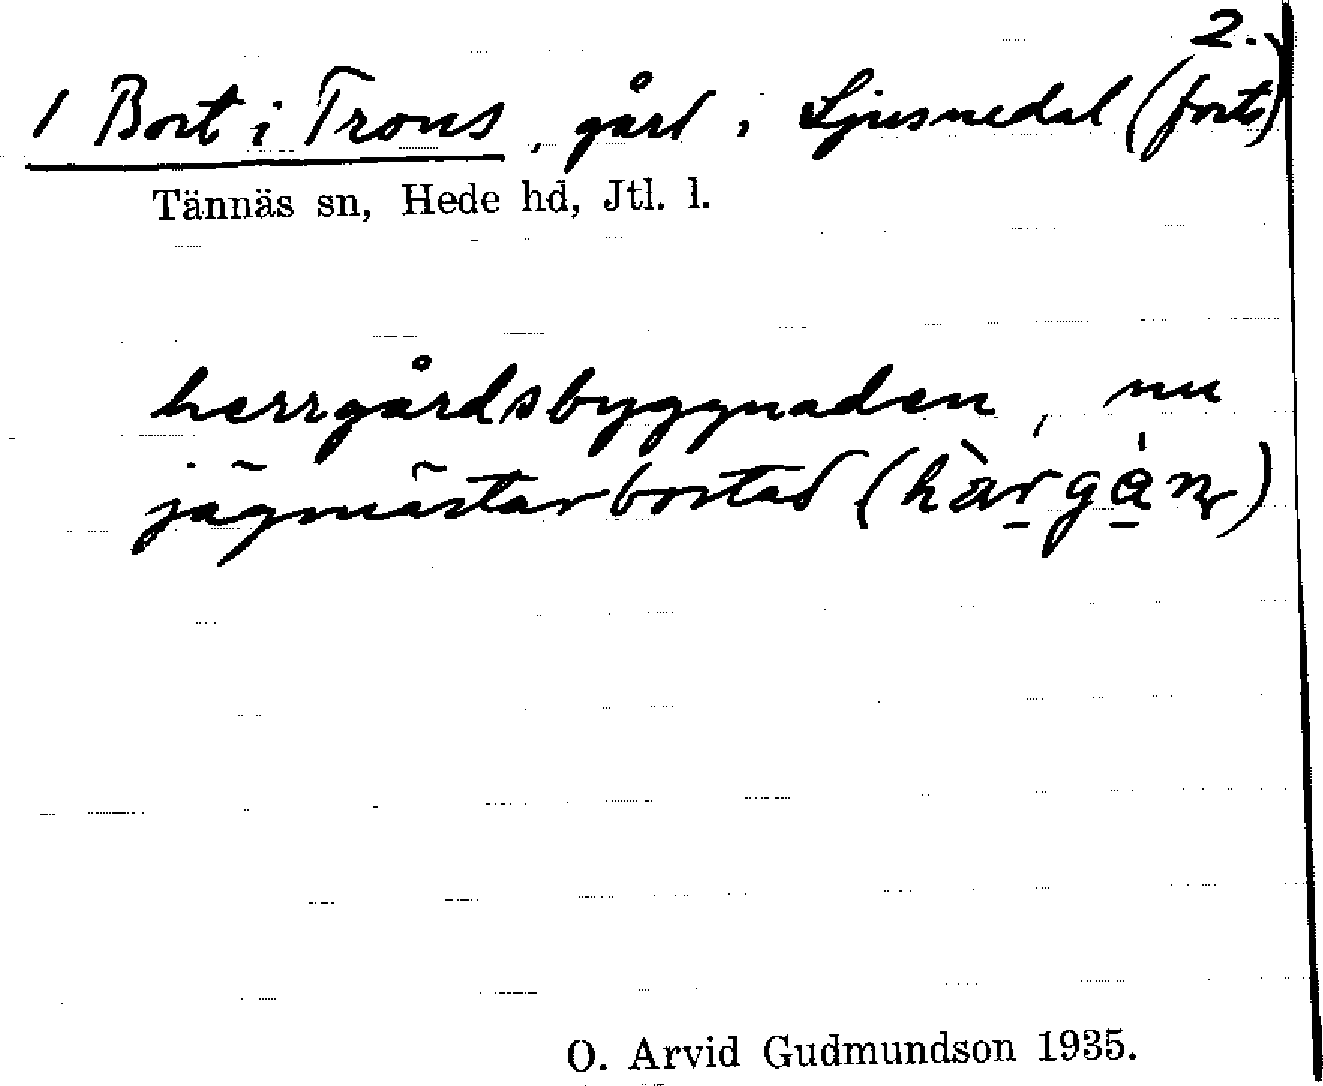 2.
1 Bort i Trons, gård i Ljusnedal (forts)
Tännäs sn, Hede hd, Jtl. l.
herrgårdsbyggnaden, nu
jägmästarbostad (
O. Arvid Gudmundson 1935.